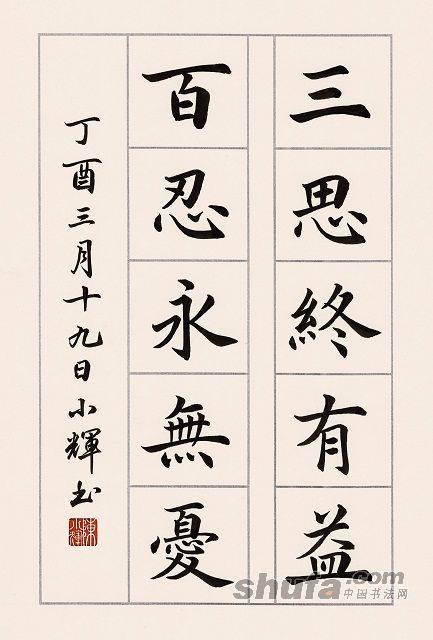 三思終有益
百忍永無憂
丁酉三月十九日小輝书
陳小輝
shufa.com
中国书法网